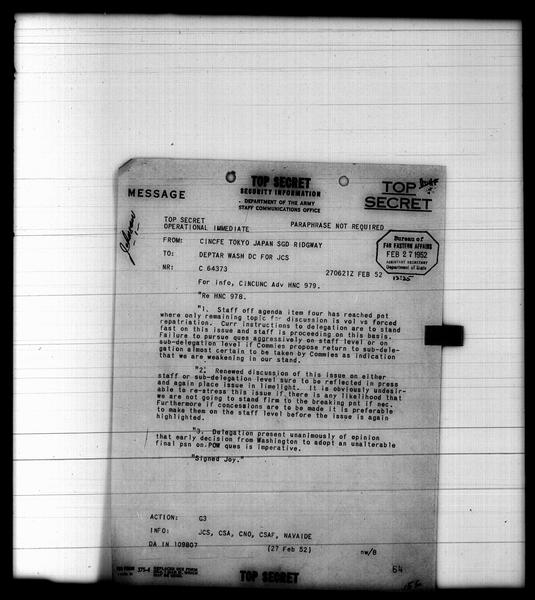 TOP SECRET
SECURITY INFORMATION
DEPARTMENT OF THE ARMY
STAFF COMMUNICATIONS OFFICE
MESSAGE
TOP
SECRET
TOP SECRET
OPERATIONAL IMMEDIATE
PARAPHRASE NOT REQUIRED
FROM: CINCFE TOKYO JAPAN SGD RIDGWAY
TO: DEPTAR WASH DC FOR JCS
NR: C 64373
270621Z FEB 52
Bureau of
FAR EASTERN AFFAIRS
FEB 27 1952
ASSISTANT SECRETARY
Department of State
For info, CINCUNC Adv HNC 979.
"Re HNC 978.
"1. Staff off agenda item four has reached pnt
where only remaining topic for discussion is vol vs forced
repatriation. Curr instructions to delegation are to stand
fast on this issue and staff is proceeding on this basis.
Failure to pursue ques aggressively on staff level or on
sub-delegation level if Commies propose return to sub-dele-
gation almost certain to be taken by Commies as indication
that we are weakening in our stand.
"2. Renewed discussion of this issue on either
staff or sub-delegation level sure to be reflected in press
and again place issue in limelight. It is obviously undesir-
able to re-stress this issue if there is any likelihood that
we are not going to stand firm to the breaking pnt if nec.
Furthermore if concessions are to be made it is preferable
to make them on the staff level before the issue is again
highlighted.
"3. Delegation present unanimously of opinion
that early decision from Washington to adopt an unalterable
final psn on POW ques is imperative.
"Signed Joy."
ACTION: G3
INFO: JCS, CSA, CNO, CSAF, NAVAIDE
DA IN 109807
(27 Feb 52)
nw/B
375-4
64
TOP SECRET